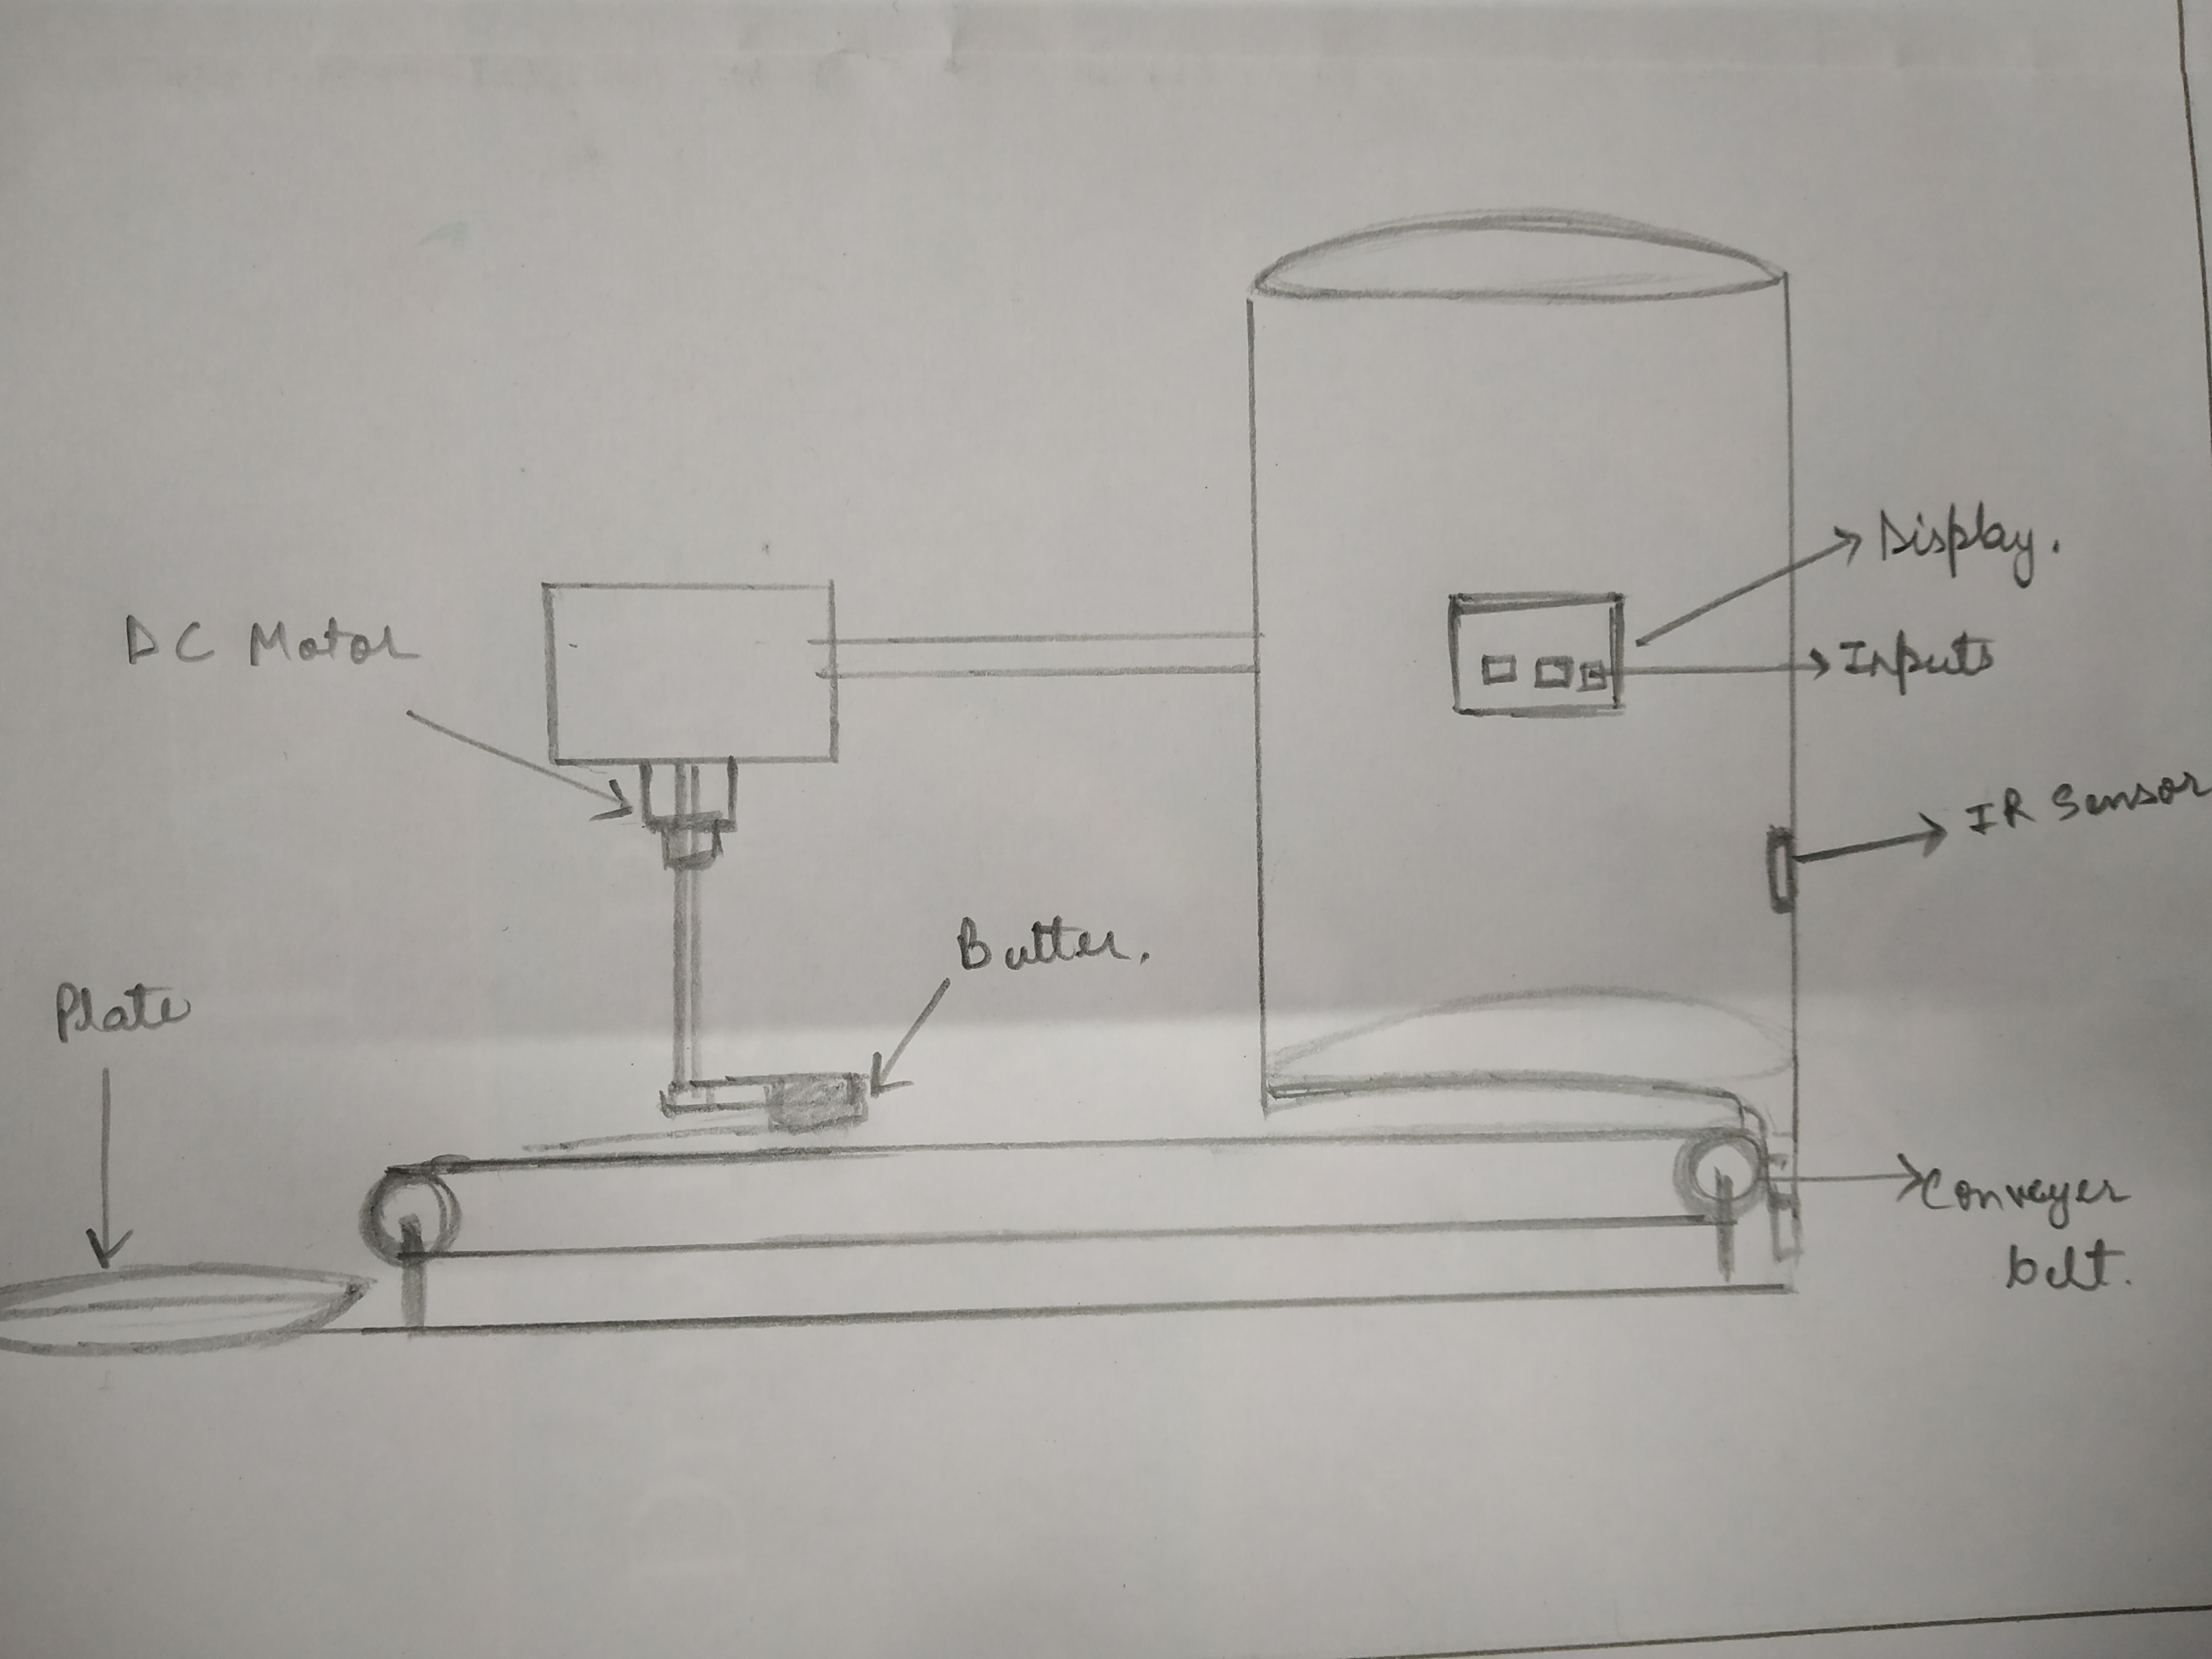 Display.
DC Motor
Inputs
IR Sensor
Butter.
Plate
Conveyer
belt.